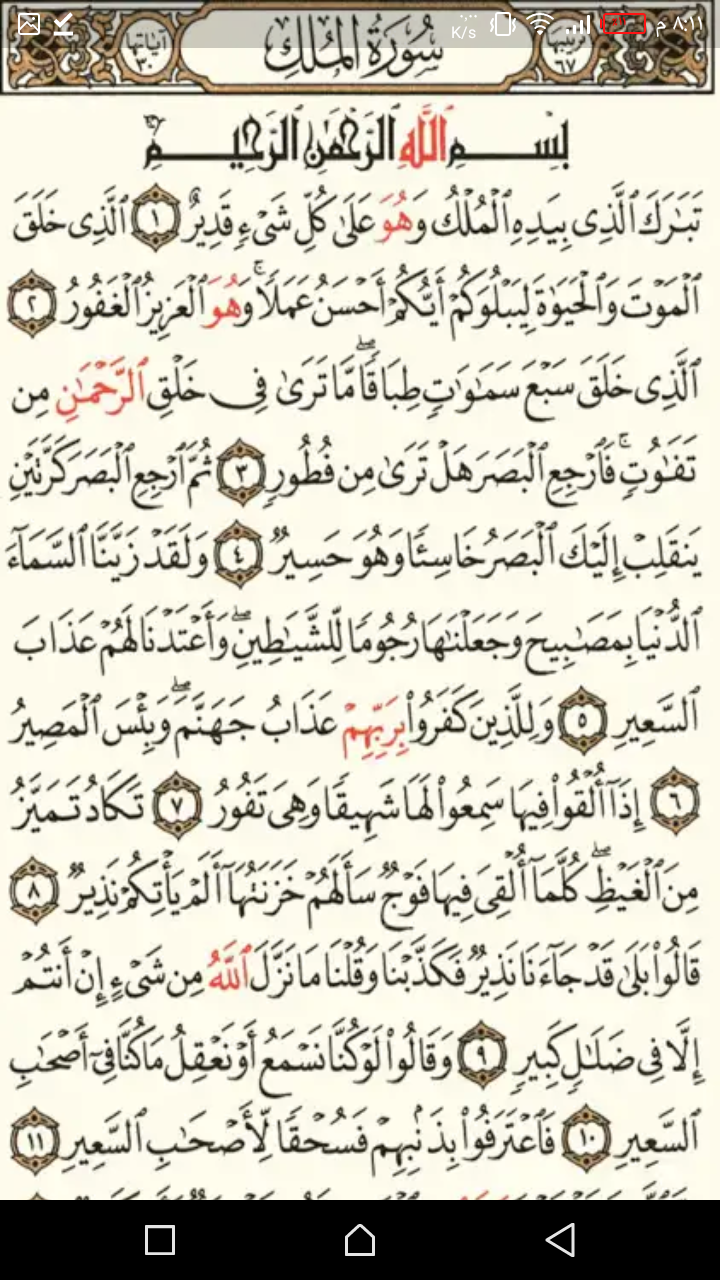 K/s ٨:١١ م
آياتها ٣٠ سُورَةُ الْمُلْكِ ترتيبها ٦٧
بِسْمِ ٱللَّهِ ٱلرَّحْمَٰنِ ٱلرَّحِيمِ
تَبَٰرَكَ ٱلَّذِى بِيَدِهِ ٱلْمُلْكُ وَهُوَ عَلَىٰ كُلِّ شَىْءٍ قَدِيرٌ ١ ٱلَّذِى خَلَقَ
ٱلْمَوْتَ وَٱلْحَيَوٰةَ لِيَبْلُوَكُمْ أَيُّكُمْ أَحْسَنُ عَمَلًا ۚ وَهُوَ ٱلْعَزِيزُ ٱلْغَفُورُ ٢
ٱلَّذِى خَلَقَ سَبْعَ سَمَٰوَٰتٍ طِبَاقًا ۖ مَّا تَرَىٰ فِى خَلْقِ ٱلرَّحْمَٰنِ مِن
تَفَٰوُتٍ ۚ فَٱرْجِعِ ٱلْبَصَرَ هَلْ تَرَىٰ مِن فُطُورٍ ٣ ثُمَّ ٱرْجِعِ ٱلْبَصَرَ كَرَّتَيْنِ
يَنقَلِبْ إِلَيْكَ ٱلْبَصَرُ خَاسِئًا وَهُوَ حَسِيرٌ ٤ وَلَقَدْ زَيَّنَّا ٱلسَّمَآءَ
ٱلدُّنْيَا بِمَصَٰبِيحَ وَجَعَلْنَٰهَا رُجُومًا لِّلشَّيَٰطِينِ ۖ وَأَعْتَدْنَا لَهُمْ عَذَابَ
ٱلسَّعِيرِ ٥ وَلِلَّذِينَ كَفَرُوا۟ بِرَبِّهِمْ عَذَابُ جَهَنَّمَ ۖ وَبِئْسَ ٱلْمَصِيرُ
٦ إِذَآ أُلْقُوا۟ فِيهَا سَمِعُوا۟ لَهَا شَهِيقًا وَهِىَ تَفُورُ ٧ تَكَادُ تَمَيَّزُ
مِنَ ٱلْغَيْظِ ۖ كُلَّمَآ أُلْقِىَ فِيهَا فَوْجٌ سَأَلَهُمْ خَزَنَتُهَآ أَلَمْ يَأْتِكُمْ نَذِيرٌ ٨
قَالُوا۟ بَلَىٰ قَدْ جَآءَنَا نَذِيرٌ فَكَذَّبْنَا وَقُلْنَا مَا نَزَّلَ ٱللَّهُ مِن شَىْءٍ إِنْ أَنتُمْ
إِلَّا فِى ضَلَٰلٍ كَبِيرٍ ٩ وَقَالُوا۟ لَوْ كُنَّا نَسْمَعُ أَوْ نَعْقِلُ مَا كُنَّا فِىٓ أَصْحَٰبِ
ٱلسَّعِيرِ ١٠ فَٱعْتَرَفُوا۟ بِذَنۢبِهِمْ فَسُحْقًا لِّأَصْحَٰبِ ٱلسَّعِيرِ ١١